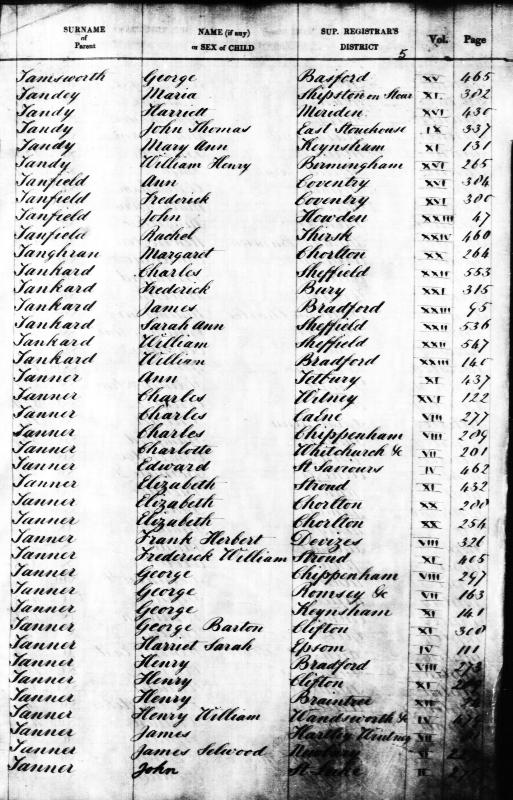 SURNAME of Parent NAME (if any) or SEX of CHILD SUP. REGISTRAR'S DISTRICT Vol. Page
5
Tamsworth George Basford XV 465
Tandey Maria Shipston on Stour XI 302
Tandy Harriett Meriden XVI 430
Tandy John Thomas East Stonehouse IX 337
Tandy Mary Ann Keynsham XI 131
Tandy William Henry Birmingham XVI 265
Tanfield Ann Coventry XVI 304
Tanfield Frederick Coventry XVI 300
Tanfield John Howden XXIII 47
Tanfield Rachel Thirsk XXIV 460
Tanghran Margaret Chorlton XX 264
Tankard Charles Sheffield XXII 553
Tankard Frederick Bury XXI 315
Tankard James Bradford XXIII 95
Tankard Sarah Ann Sheffield XXII 536
Tankard William Sheffield XXII 547
Tankard William Bradford XXIII 140
Tanner Ann Tetbury XI 437
Tanner Charles Witney XVI 122
Tanner Charles Calne VIII 277
Tanner Charles Chippenham VIII 289
Tanner Charlotte Whitchurch &c VII 201
Tanner Edward St Saviours IV 462
Tanner Elizabeth Stroud XI 432
Tanner Elizabeth Chorlton XX 200
Tanner Elizabeth Chorlton XX 254
Tanner Frank Herbert Devizes VIII 326
Tanner Frederick William Stroud XI 405
Tanner George Chippenham VIII 297
Tanner George Romsey &c VII 163
Tanner George Keynsham XI 141
Tanner George Barton Clifton XI 300
Tanner Harriet Sarah Epsom IV 111
Tanner Henry Bradford VIII 273
Tanner Henry Clifton XI
Tanner Henry Braintree XII
Tanner Henry William Wandsworth &c IV
Tanner James Hartley Wintney VII
Tanner James Selwood Newbury
Tanner John St Luke II